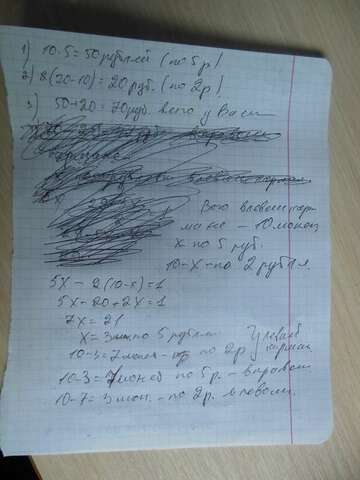 1) 10·5=50 рублей (по 5 р)
2) 2(20-10)=20 руб. (по 2р)
3) 50+20=70 руб. всего у Васи
Всю в левом кар-
мане - 10 монет
x по 5 руб.
10-x - по 2 рубля.
5x - 2(10-x)=1
5x - 20+2x=1
7x=21
x=3 по 5 рублей
10-3=7 монет - по 2р
У левый карман
10-3=7 монет по 5р. - в правом
10-7=3 мон. - по 2р. в